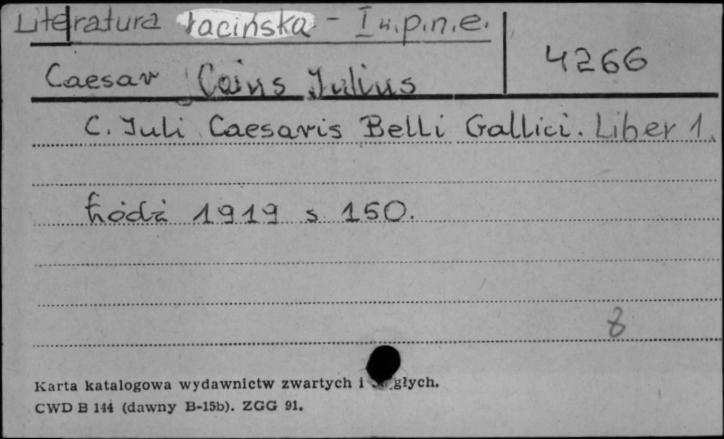 Literatura łacińska - I w.p.n.e.
4266
Caesar Caius Julius
C. Juli Caesaris Belli Gallici. Liber 1.
Łódź 1919 s 150.
8
Karta katalogowa wydawnictw zwartych i głych.
CWD B 144 (dawny B-15b). ZGG 91.